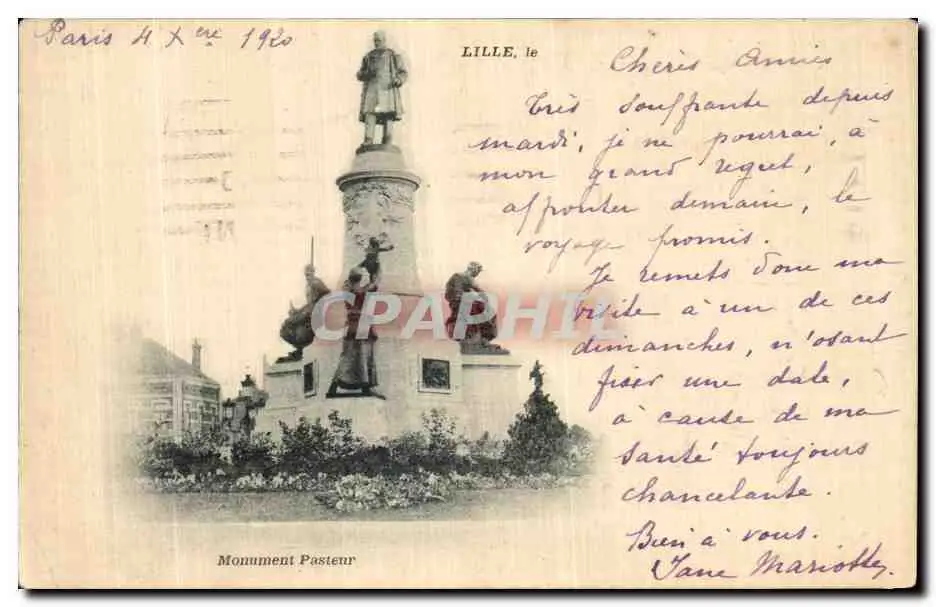 Paris 4 Xere 1920
LILLE, le
Chères Amies
Très souffrante depuis
mardi, je ne pourrai, à
mon grand regret,
affronter demain, le
voyage promis.
Je remets donc ma
visite à un de ces
dimanches, n'osant
fixer une date,
à cause de ma
santé toujours
chancelante.
Bien à vous.
Jane Mariotte
CPAPHIL
Monument Pasteur